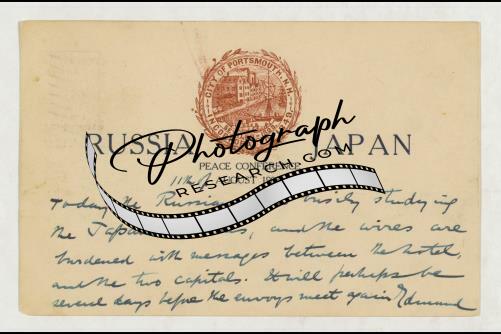 CITY OF PORTSMOUTH, N.H.
RUSSIA JAPAN
Photograph
RESEARCH.COM
PEACE CONFERENCE
11th AUGUST
Today the Russia busily studying
the Japan and the wires are
burdened with messages between the hotel,
and the two capitals. It will perhaps be
several days before the envoys meet again Edmund